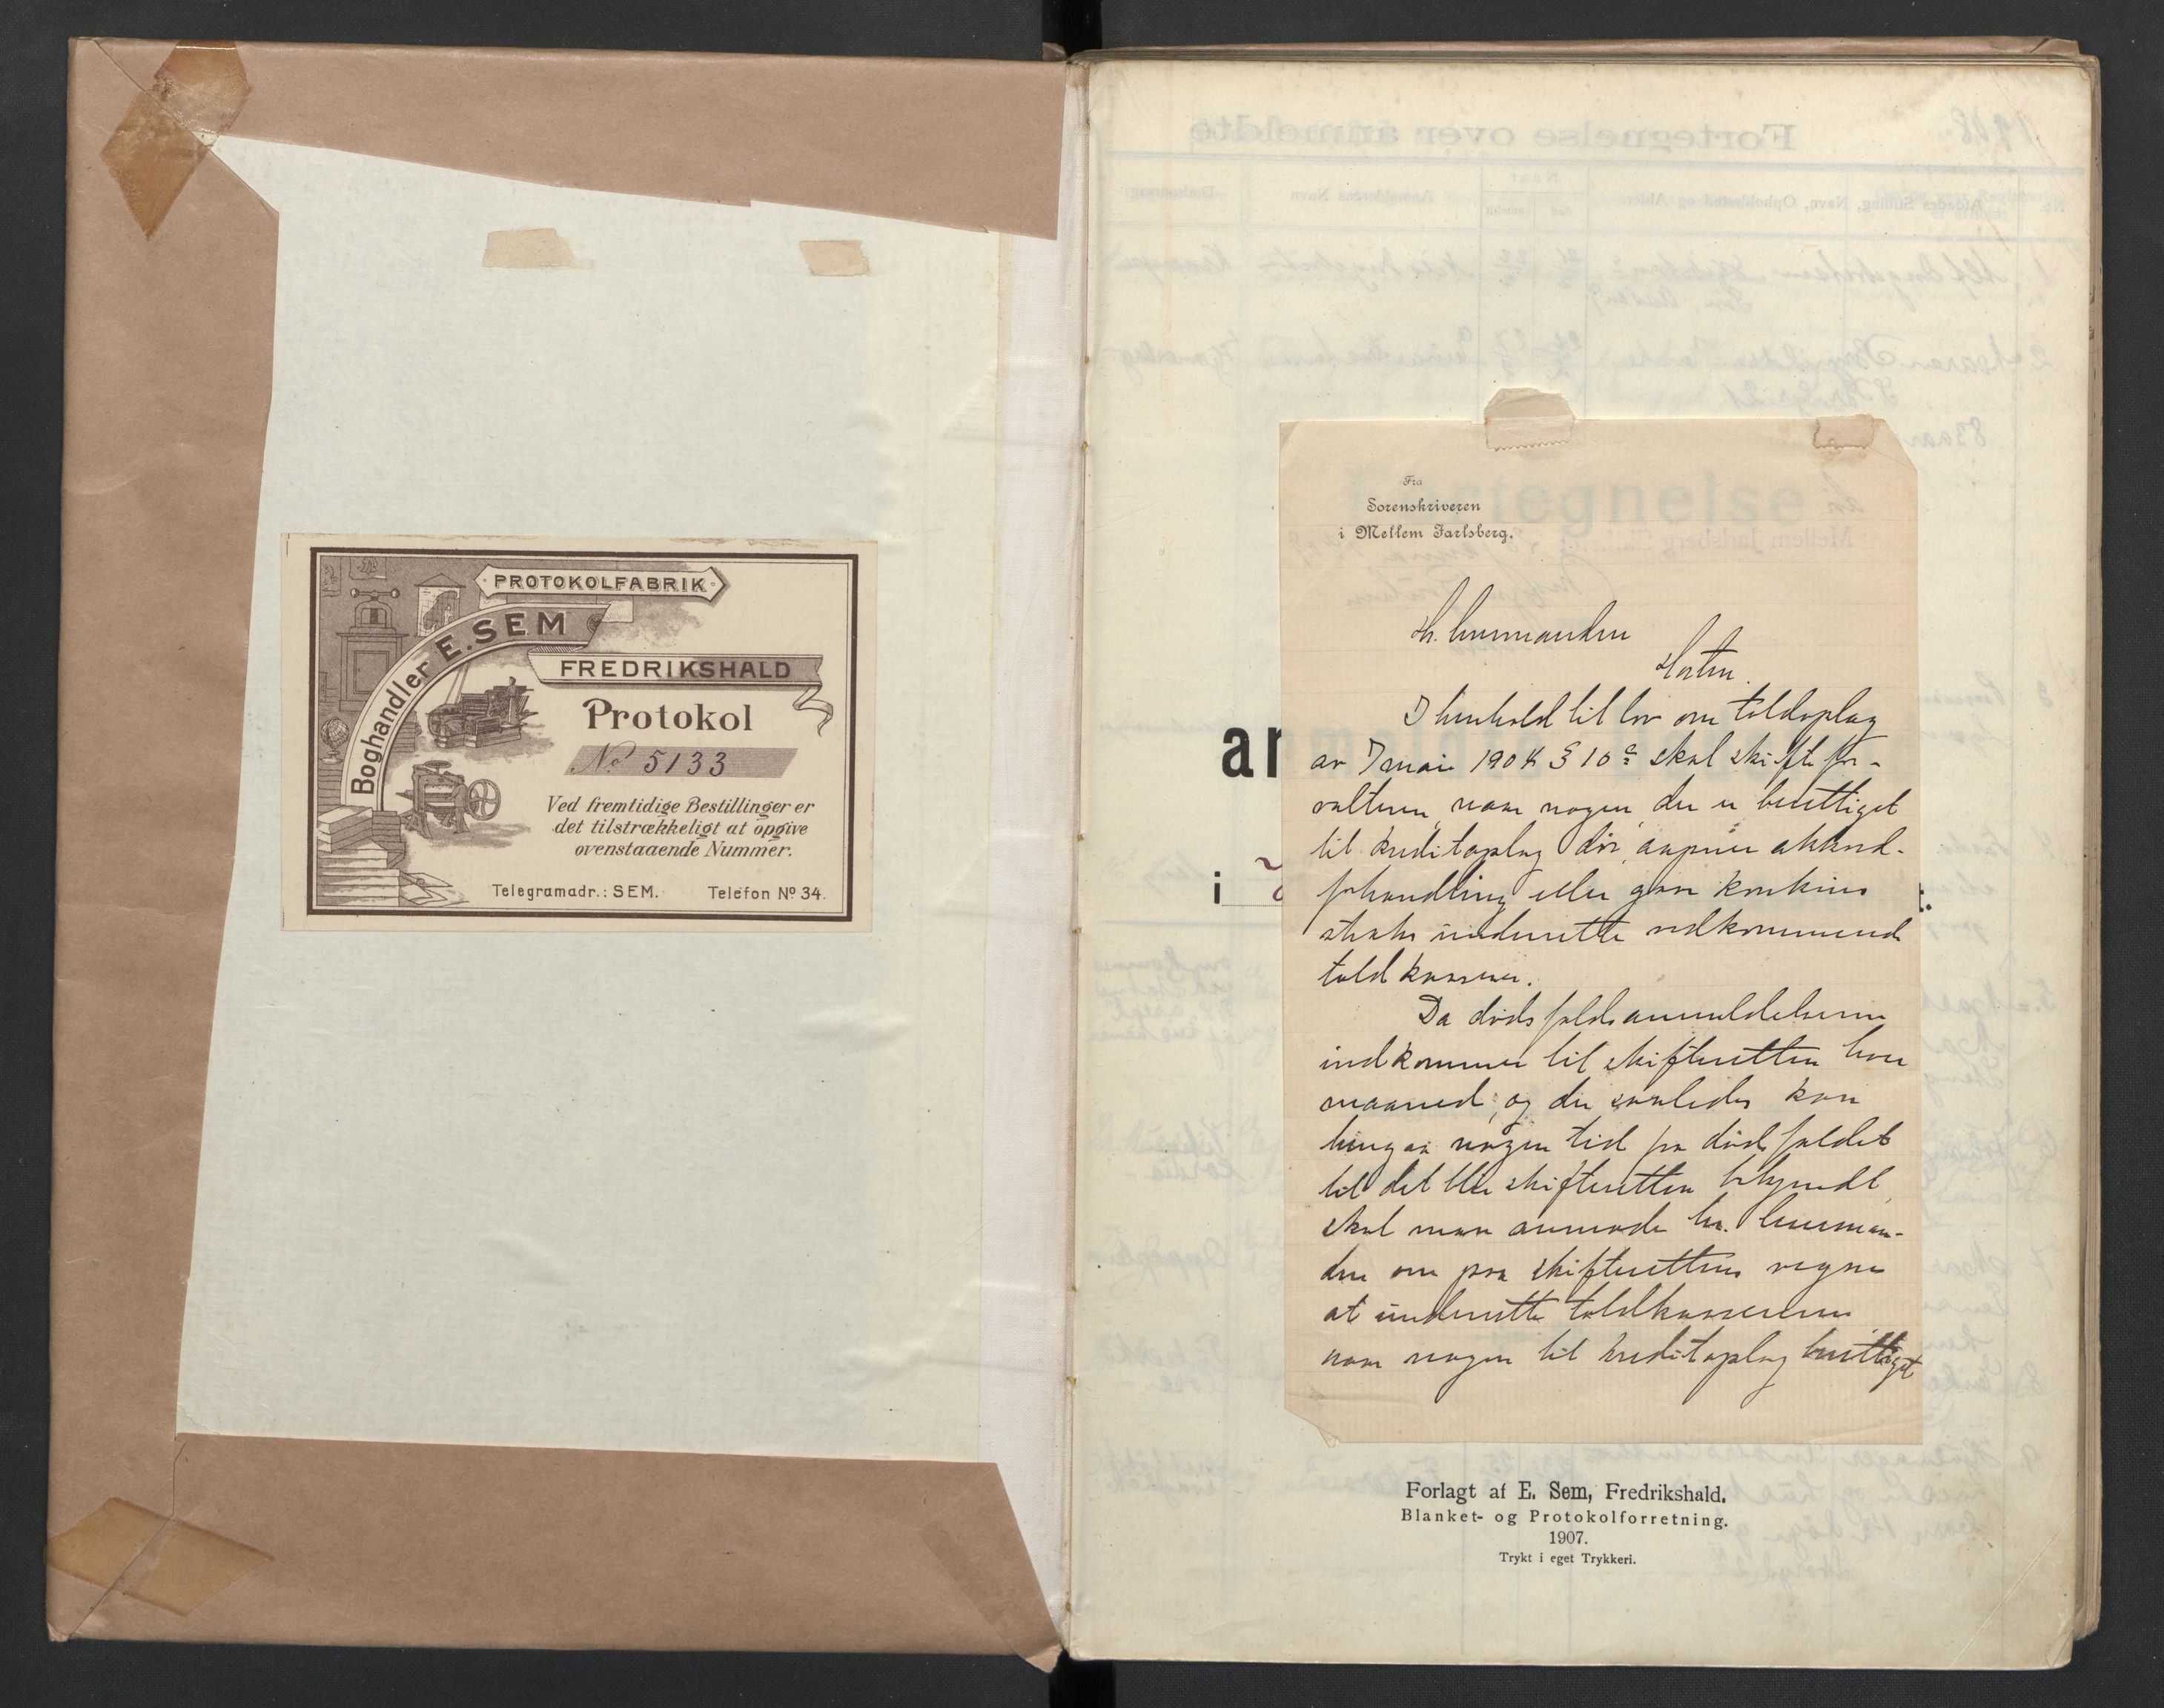 PROTOKOLFABRIK
Boghandler E. SEM
FREDRIKSHALD
Protokol
No 5133
Ved fremtidige Bestillinger er
det tilstrækkeligt at opgive
ovenstaaende Nummer.
Telegramadr.: SEM. Telefon No 34.
Fra
Sorenskriveren
i Mellem Jarlsberg.
Hr. lensmanden
Horten.
I henhold til lov om toldoplag
av 7 mai 1904 § 10 skal skiftefor-
valteren, naar nogen, der er berettiget
til kreditoplag dør, aapner akkord-
forhandling eller gaar konkurs
straks underrette vedkommende
toldkasserer.
Da dødsfaldsanmeldelserne
indkommer til skifteretten hver
maaned, og der saaledes kan
hengaa nogen tid fra dødsfaldet
til det blir skifteretten bekjendt,
skal man anmode hr. lensman-
den om paa skifterettens vegne
at underrette toldkassereren
naar nogen til kreditoplag berettiget
an
i
Forlagt af E. Sem, Fredrikshald.
Blanket- og Protokolforretning.
1907.
Trykt i eget Trykkeri.